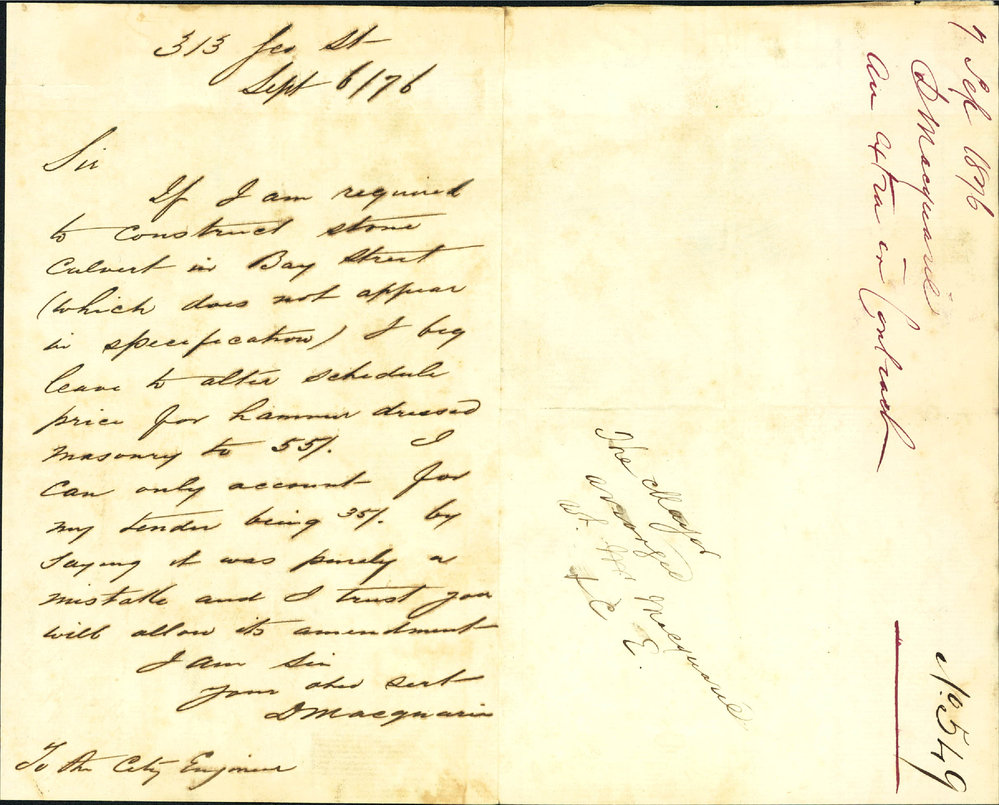 313 Geo St
Sept 6/76
Sir
If I am required
to construct stone
Culvert in Bay Street
(which does not appear
in specification) I beg
leave to alter schedule
price for hammer dressed
masonry to 55/. I
can only account for
my tender being 35/. by
saying it was purely a
mistake and I trust you
will allow its amendment
I am Sir
your obed sert
D Macquarie
To the City Engineer
The Mayor
arranged
W. Mr Macquarie
C. E.
7 Sep 1876
D Macquarie
an extra in Contract
No. 549